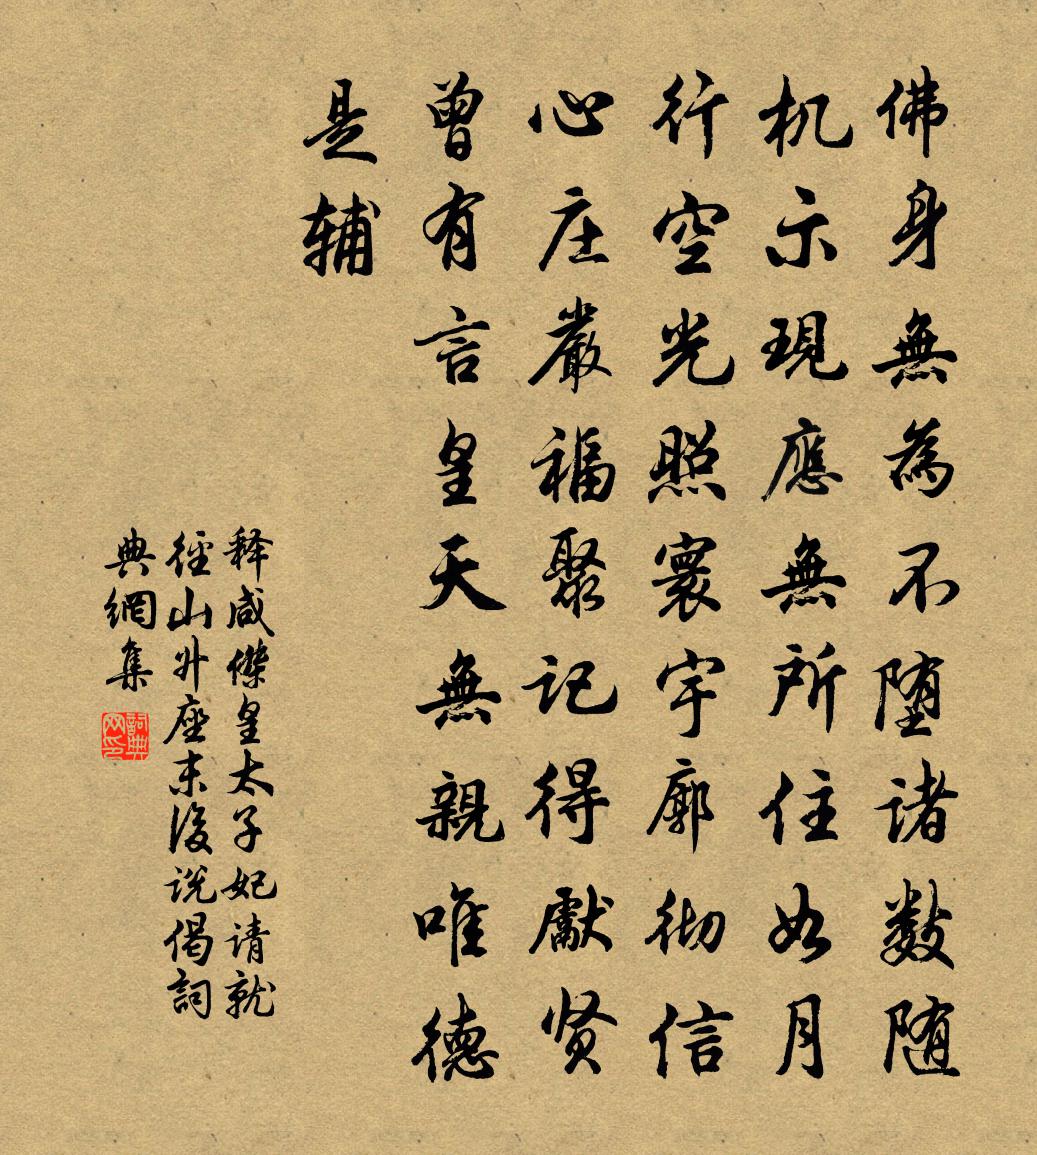 佛身無為不堕诸数随
机示現應無所住如月
行空光照寰宇廓彻信
心庄嚴福聚記得獻贤
曾有言皇天無親唯德
是辅
释咸傑皇太子妃请就
徑山升座末後说偈詞
典網集
詞典网印